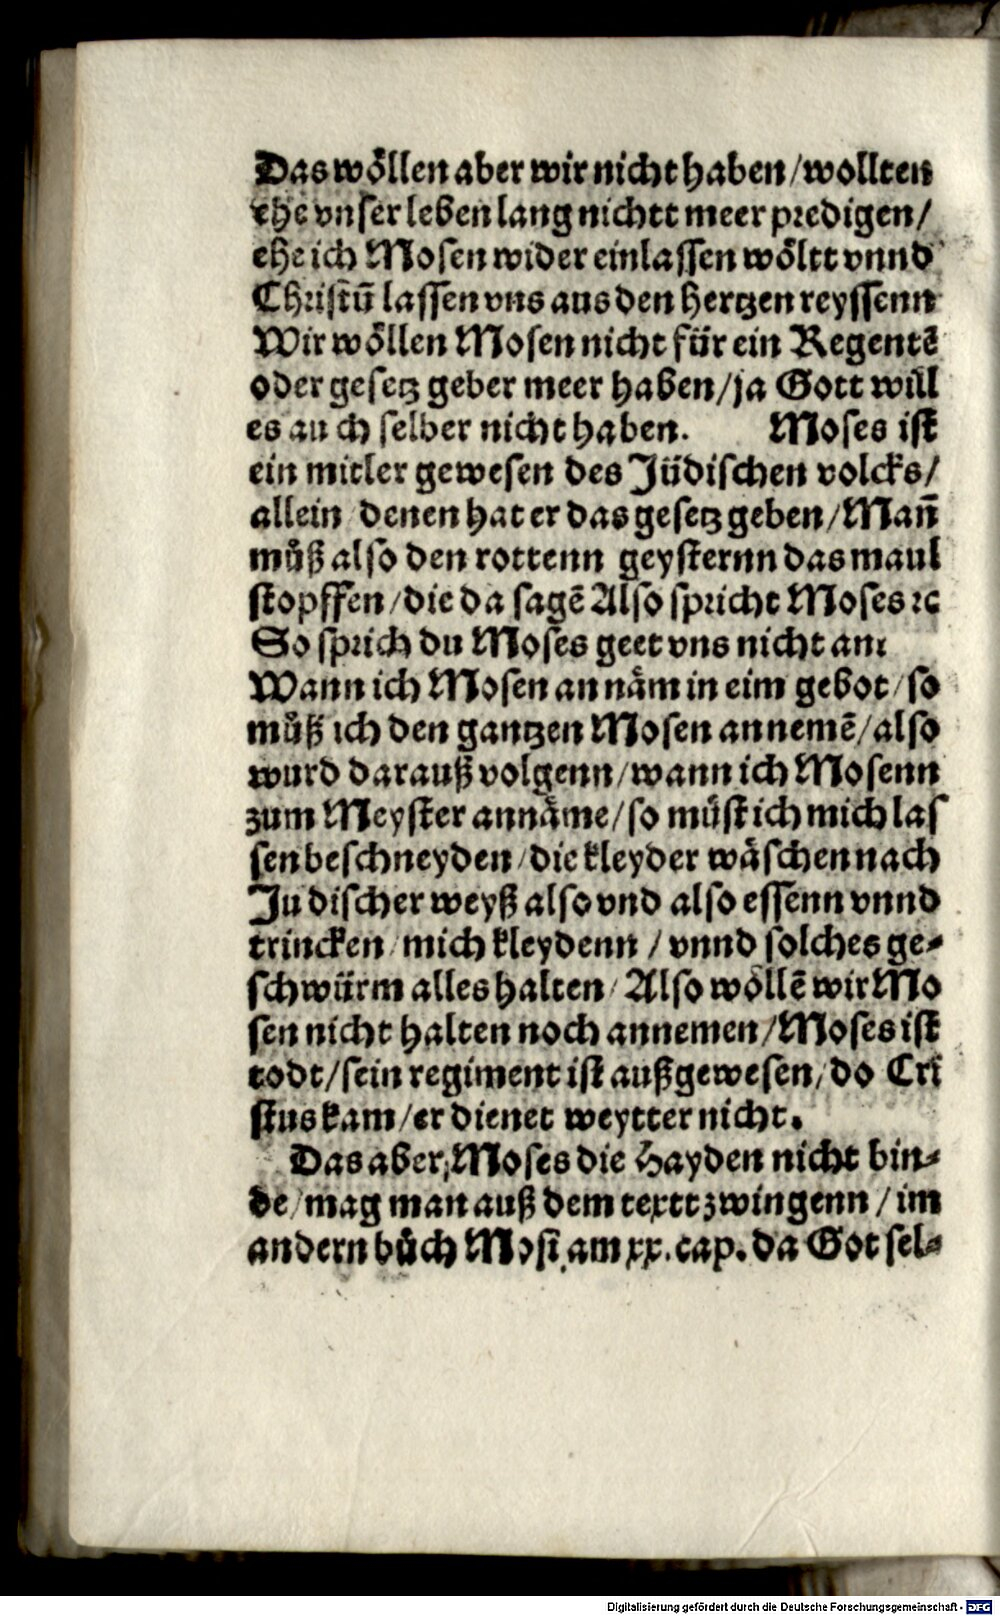 Das wöllen aber wir nicht haben/wollten
ehe vnser leben lang nichtt meer predigen/
ehe ich Mosen wider einlassen wöltt vnnd
Christū lassen vns aus den hertzen reyssenn
Wir wöllen Mosen nicht für ein Regentē
oder gesetz geber meer haben/ja Gott will
es auch selber nicht haben. Moses ist
ein mitler gewesen des Jüdischen volcks/
allein denen hat er das gesetz geben/Man̄
můß also den rottenn geysternn das maul
stopffen/die da sagē Also spricht Moses ꝛc
So sprich du Moses geet vns nicht an:
Wann ich Mosen an näm in eim gebot/so
můß ich den gantzen Mosen annemē/also
wurd darauß volgenn/wann ich Mosenn
zum Meyster annäme/so müst ich mich las
sen beschneyden/die kleyder wäschen nach
Judischer weyß also vnd also essenn vnnd
trincken/mich kleydenn/vnnd solches ge-
schwürm alles halten/Also wöllē wir Mo
sen nicht halten noch annemen/Moses ist
todt/sein regiment ist auß gewesen/do Cri
stus kam/er dienet weytter nicht.
Das aber/Moses die Hayden nicht bin-
de/mag man auß dem textt zwingenn/im
andern bůch Mosi am xx.cap. da Got sel-
Digitalisierung gefördert durch die Deutsche Forschungsgemeinschaft - DFG